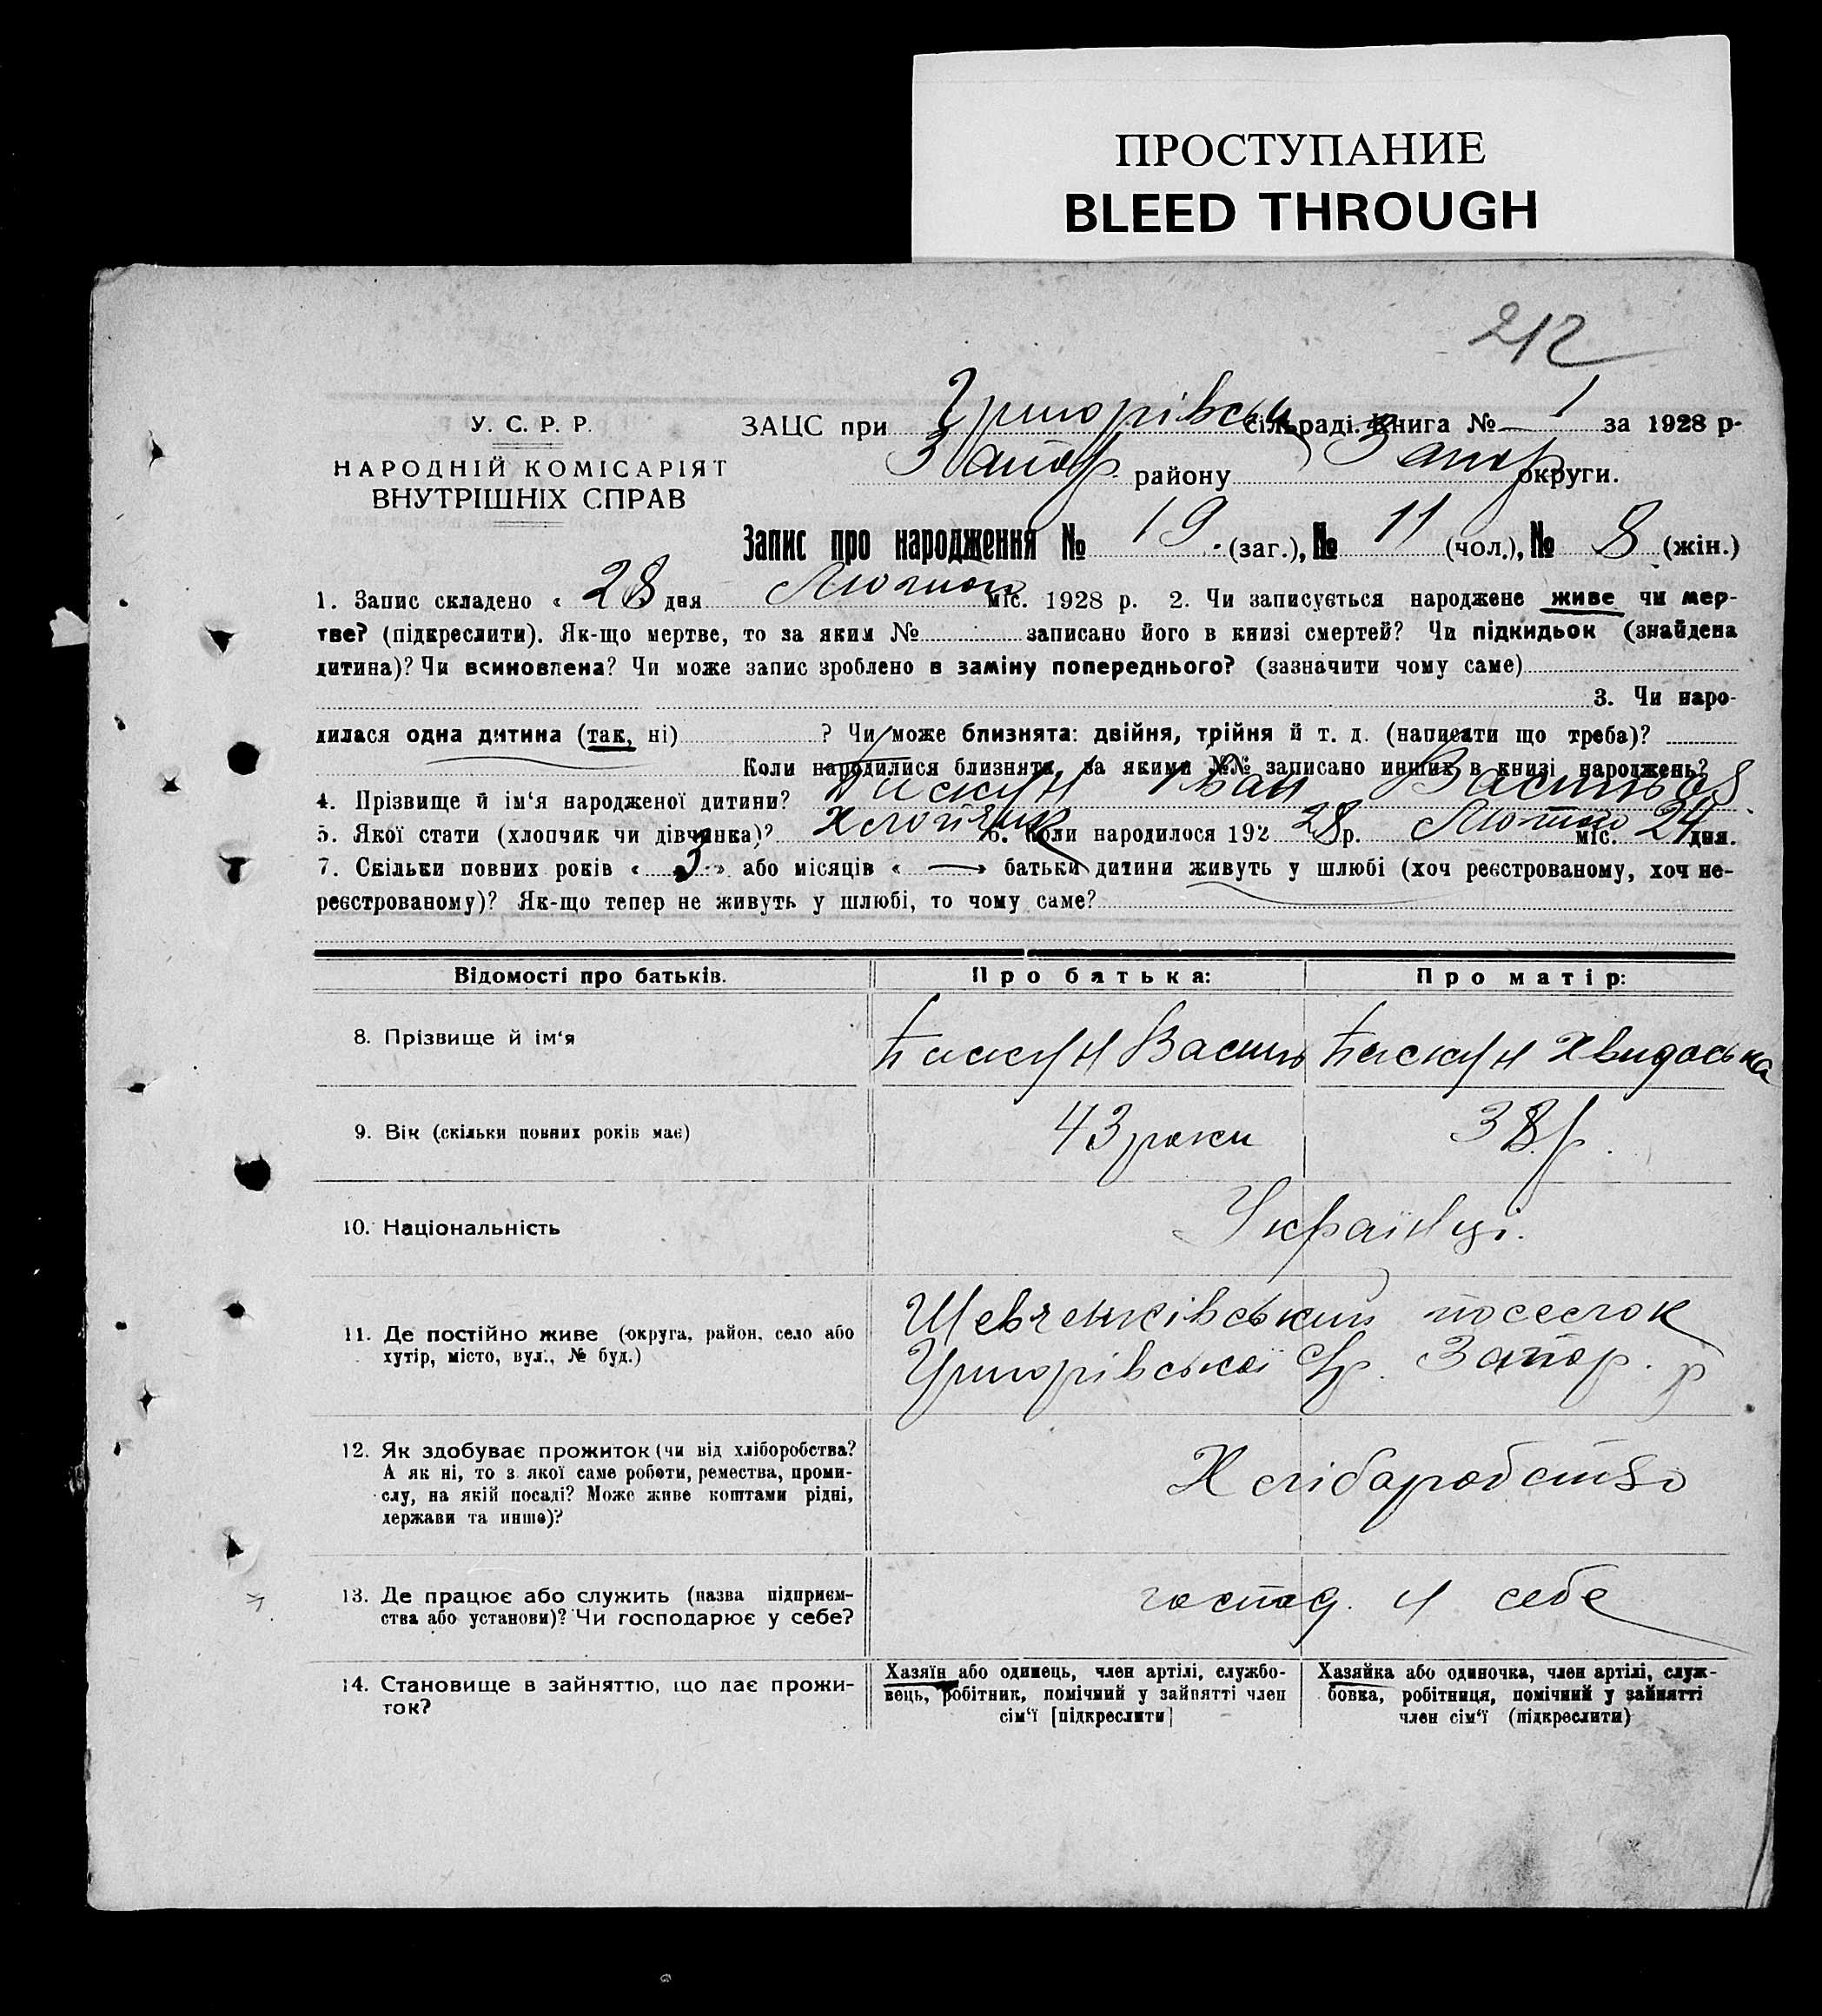 ПРОСТУПАНИЕ
BLEED THROUGH
212
У. С. Р. Р.
НАРОДНІЙ КОМІСАРІЯТ
ВНУТРІШНІХ СПРАВ
ЗАЦС при Григорівськ сільраді. Книга № 1 за 1928 р.
Запор. району Запор. округи.
Запис про народження № 19 (заг.), № 11 (чол.), № 8 (жін.)
1. Запис складено « 28 дня Лютого міс. 1928 р. 2. Чи записується народжене живе чи мер-
тве? (підкреслити). Як-що мертве, то за яким № записано його в книзі смертей? Чи підкидьок (знайдена
дитина)? Чи всиновлена? Чи може запис зроблено в заміну попереднього? (зазначити чому саме)
3. Чи наро-
дилася одна дитина (так, ні) ? Чи може близнята: двійня, трійня й т. д. (написати що треба)?
Коли народилися близнята, за якими №№ записано инших в книзі народжень?
4. Прізвище й ім'я народженої дитини? Пискун Іван Васильов
5. Якої стати (хлопчик чи дівчинка)? Хлопчик 6. Коли народилося 192 28 р. Лютого міс. 24 дня.
7. Скільки повних років « 3 » або місяців « — » батьки дитини живуть у шлюбі (хоч реєстрованому, хоч не-
реєстрованому)? Як-що тепер не живуть у шлюбі, то чому саме?
Відомості про батьків. Про батька: Про матір:
8. Прізвище й ім'я Пискун Василь Пискун Хвидоська
9. Вік (скільки повних років має) 43 роки 38 р.
10. Національність Українці.
11. Де постійно живе (округа, район, село або
хутір, місто, вул., № буд.)
Шевченківський поселок
Григорівської с/р. Запор. р
12. Як здобуває прожиток (чи від хліборобства?
А як ні, то з якої саме роботи, ремества, проми-
слу, на якій посаді? Може живе коштами рідні,
держави та инше)?
Хліборобство
13. Де працює або служить (назва підприєм-
ства або установи)? Чи господарює у себе?
господ. у себе
14. Становище в зайняттю, що дає прожи-
ток?
Хазяїн або одинець, член артілі, службо-
вець, робітник, помічний у зайнятті член
сім'ї [підкреслити]
Хазяйка або одиночка, член артілі, служ-
бовка, робітниця, помічний у зайнятті
член сім'ї (підкреслити)